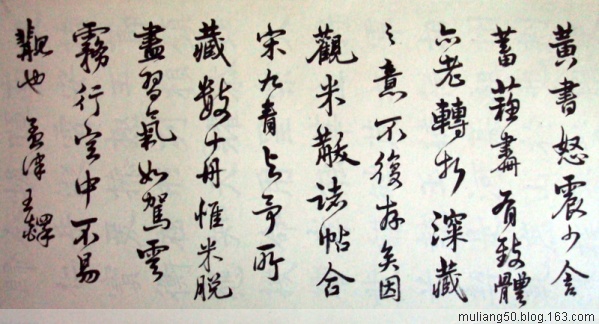 黃書怒震少含
蓄蘇書有致體
亦老轉折深藏
之意不復存矣因
觀米散諸帖合
宋九青與予所
藏數十冊惟米脫
盡習氣如駕雲
霧行空中不易
覯也 孟津王鐸
muliang50.blog.163.com